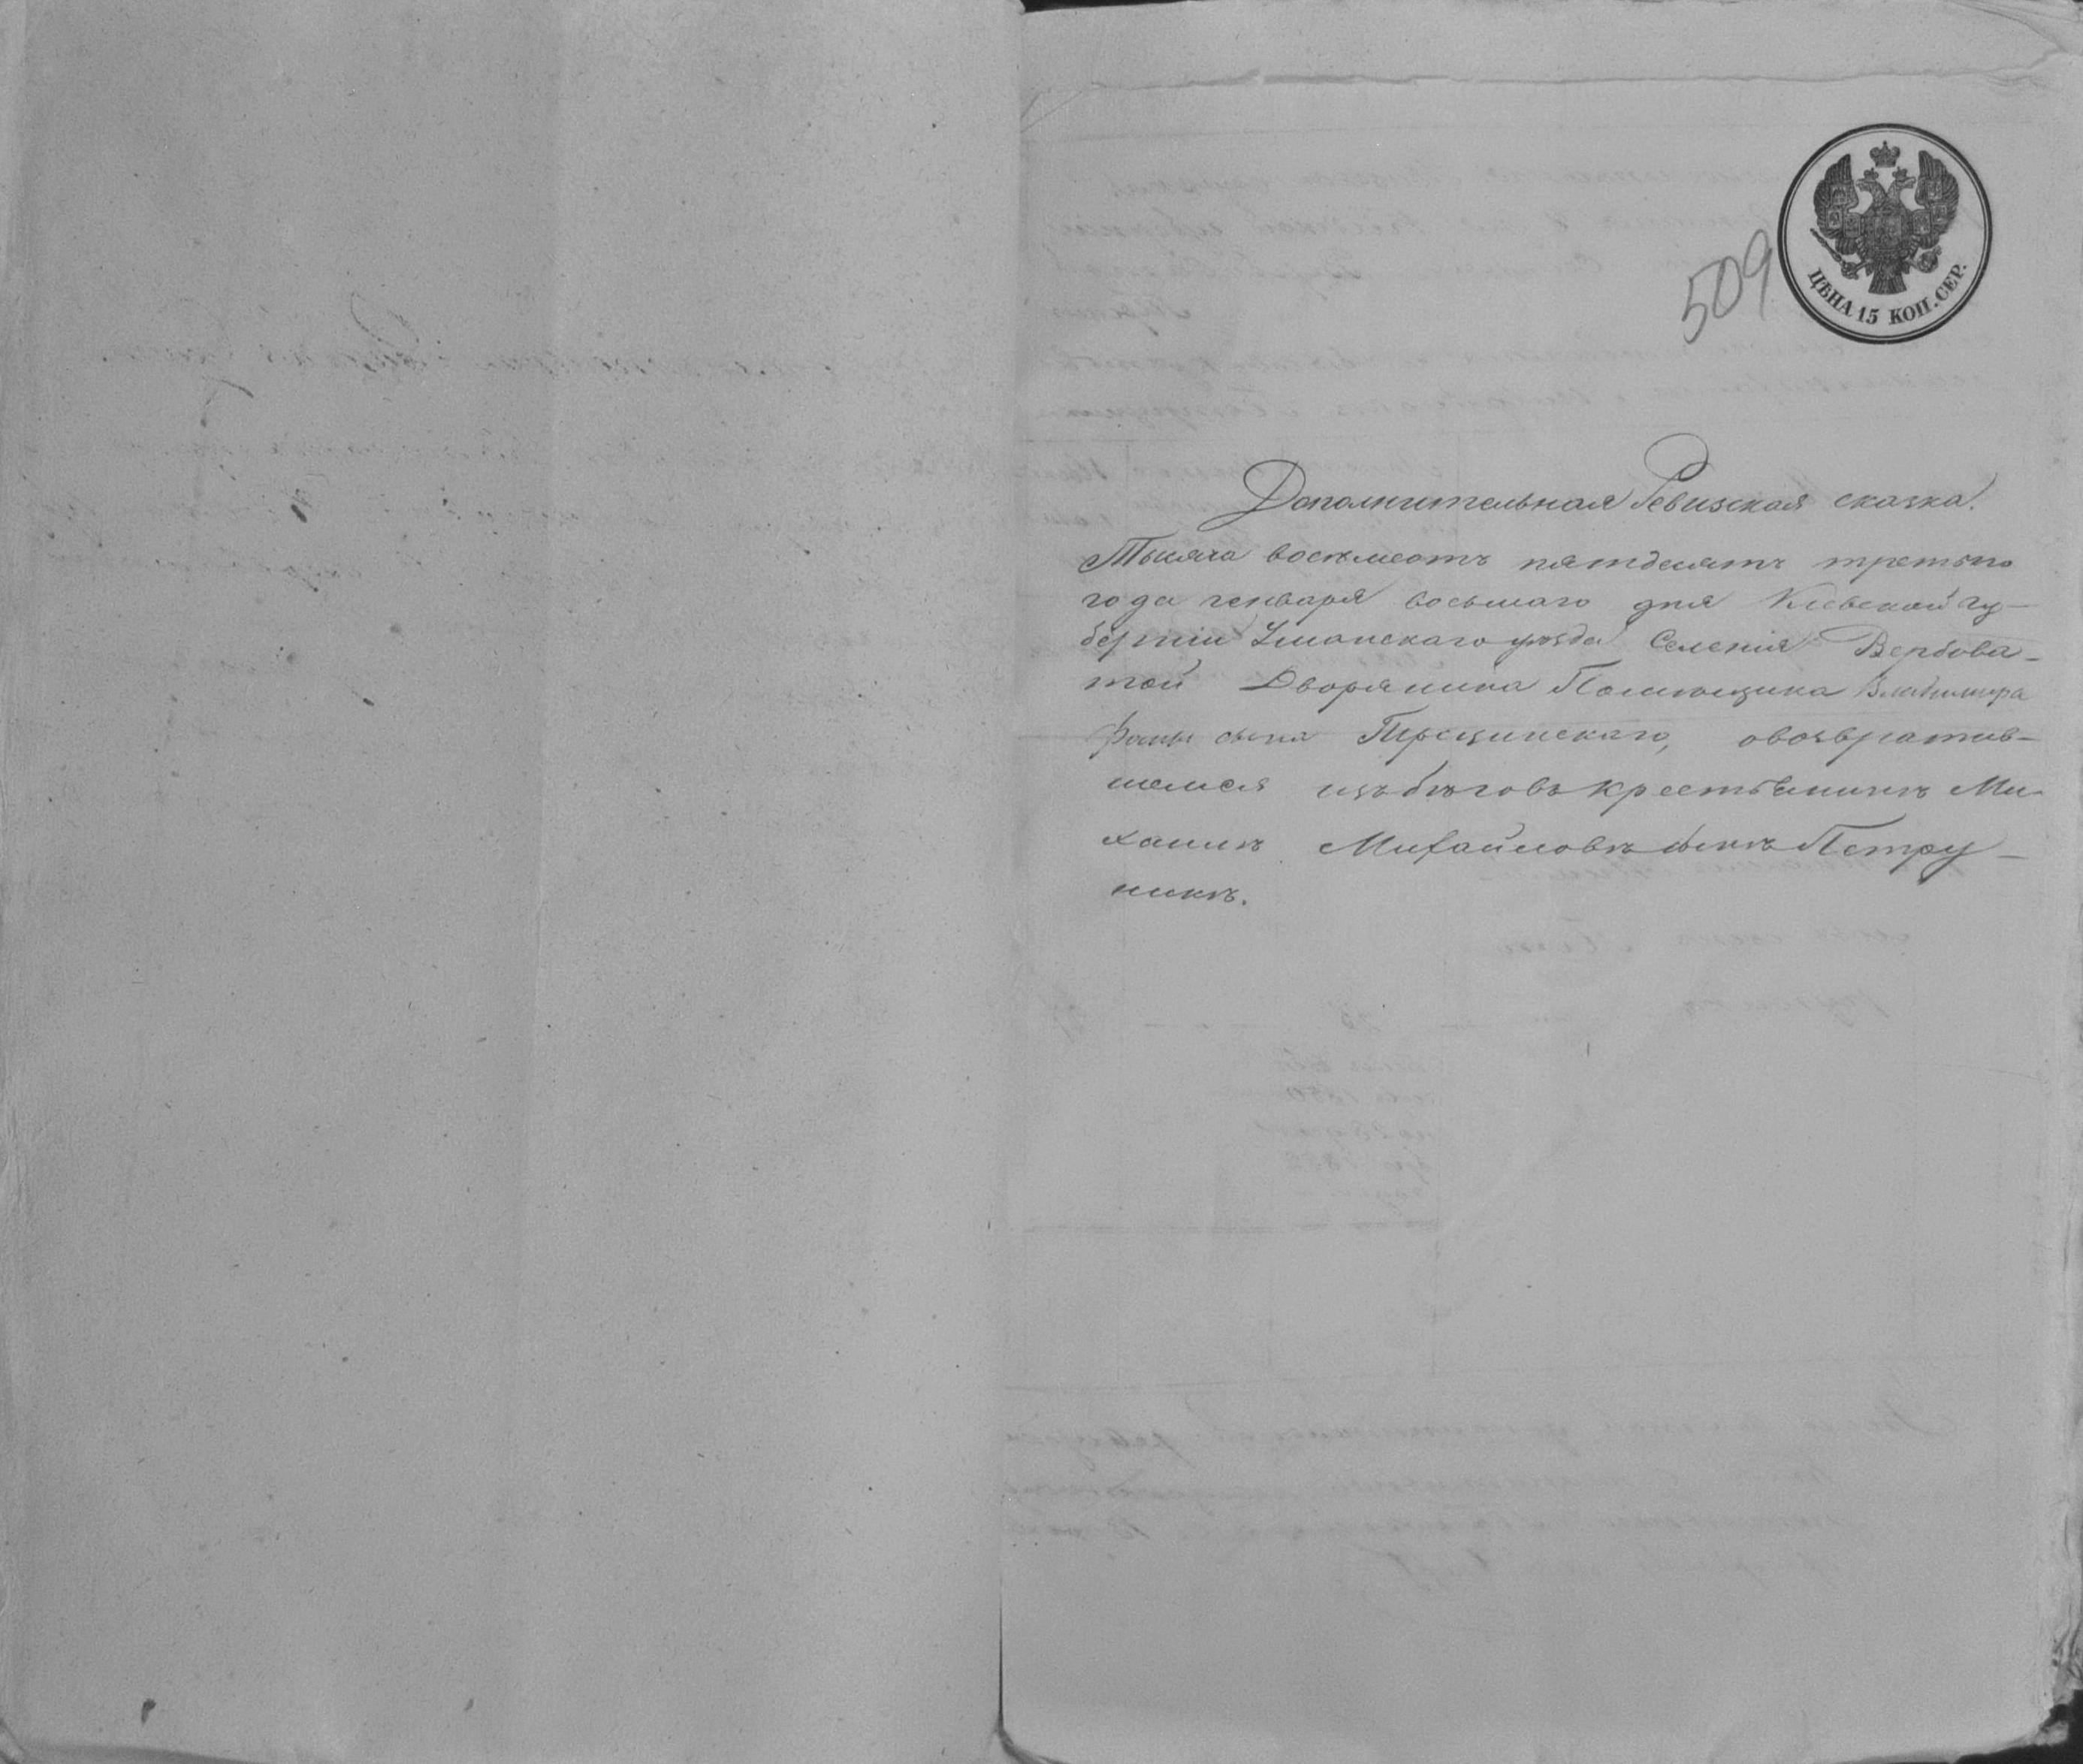 509
ЦѢНА 15 КОП. СЕР.
Дополнительная Ревизская сказка.
Тысяча восемьсотъ пятдесятъ третьго
года генваря восьмаго дня Кіевской гу-
берніи Уманскаго уѣзда Селенія Вербова-
той Дворянина Помѣщика Владимира
сына Трещинскаго, овозвратив-
шемся изъ бѣговъ крестьянинѣ Ми-
хаилѣ Михайловѣ сынѣ Петру-
никѣ.